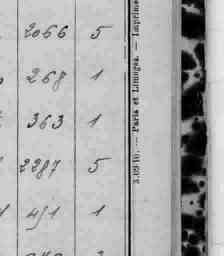 2066 5
268 1
363 1
2287 5
491 1
3.09-10. — Paris et Limoges. — Imprime